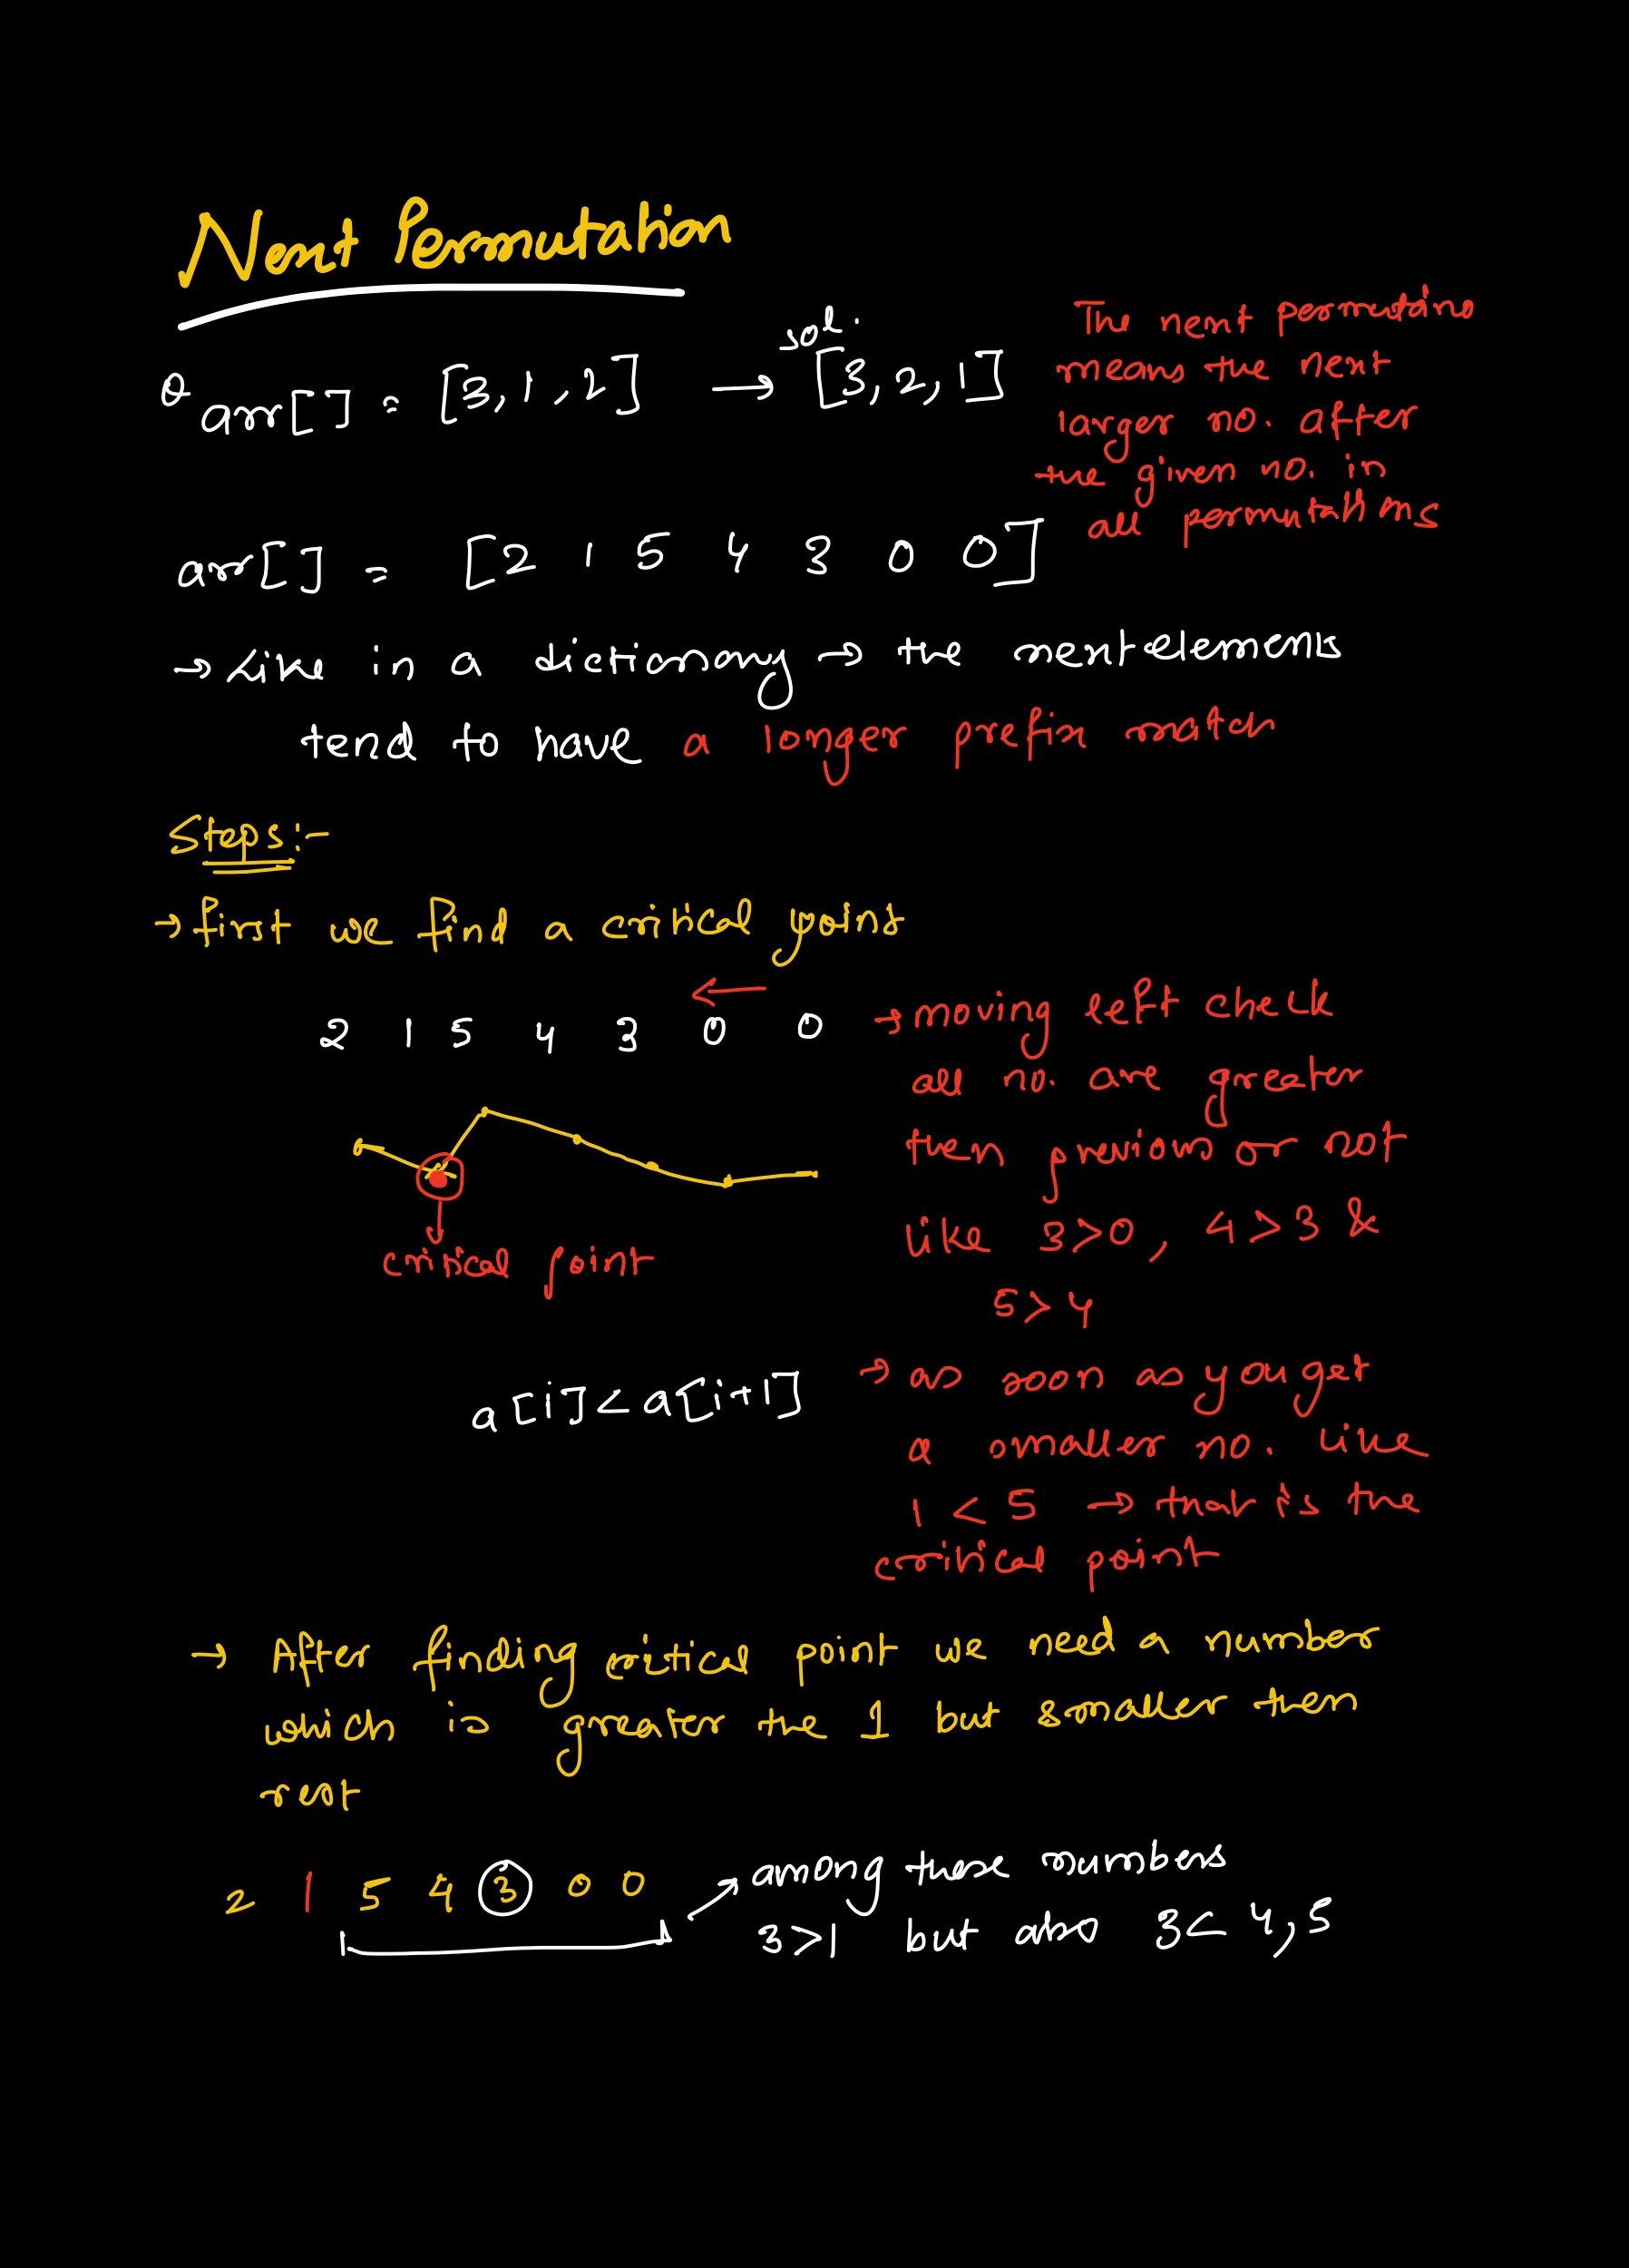 Next Permutation
Q arr[] = [3, 1, 2] → sol. [3, 2, 1]
The next permutations
means the next
larger no. after
the given no. in
all permutations
arr[] = [2 1 5 4 3 0 0]
→ Like in a dictionary → the next elements
tend to have a longer prefix match
Steps:-
→ first we find a critical point
2 1 5 4 3 0 0
←
critical point
a[i] < a[i+1]
→ moving left check
all no. are greater
then previous or not
like 3>0, 4>3 &
5>4
→ as soon as you get
a smaller no. like
1 < 5 → that is the
critical point
→ After finding critical point we need a number
which is greater the 1 but smaller then
rest
2 1 5 4 3 0 0
→ among these numbers
3>1 but also 3< 4, 5